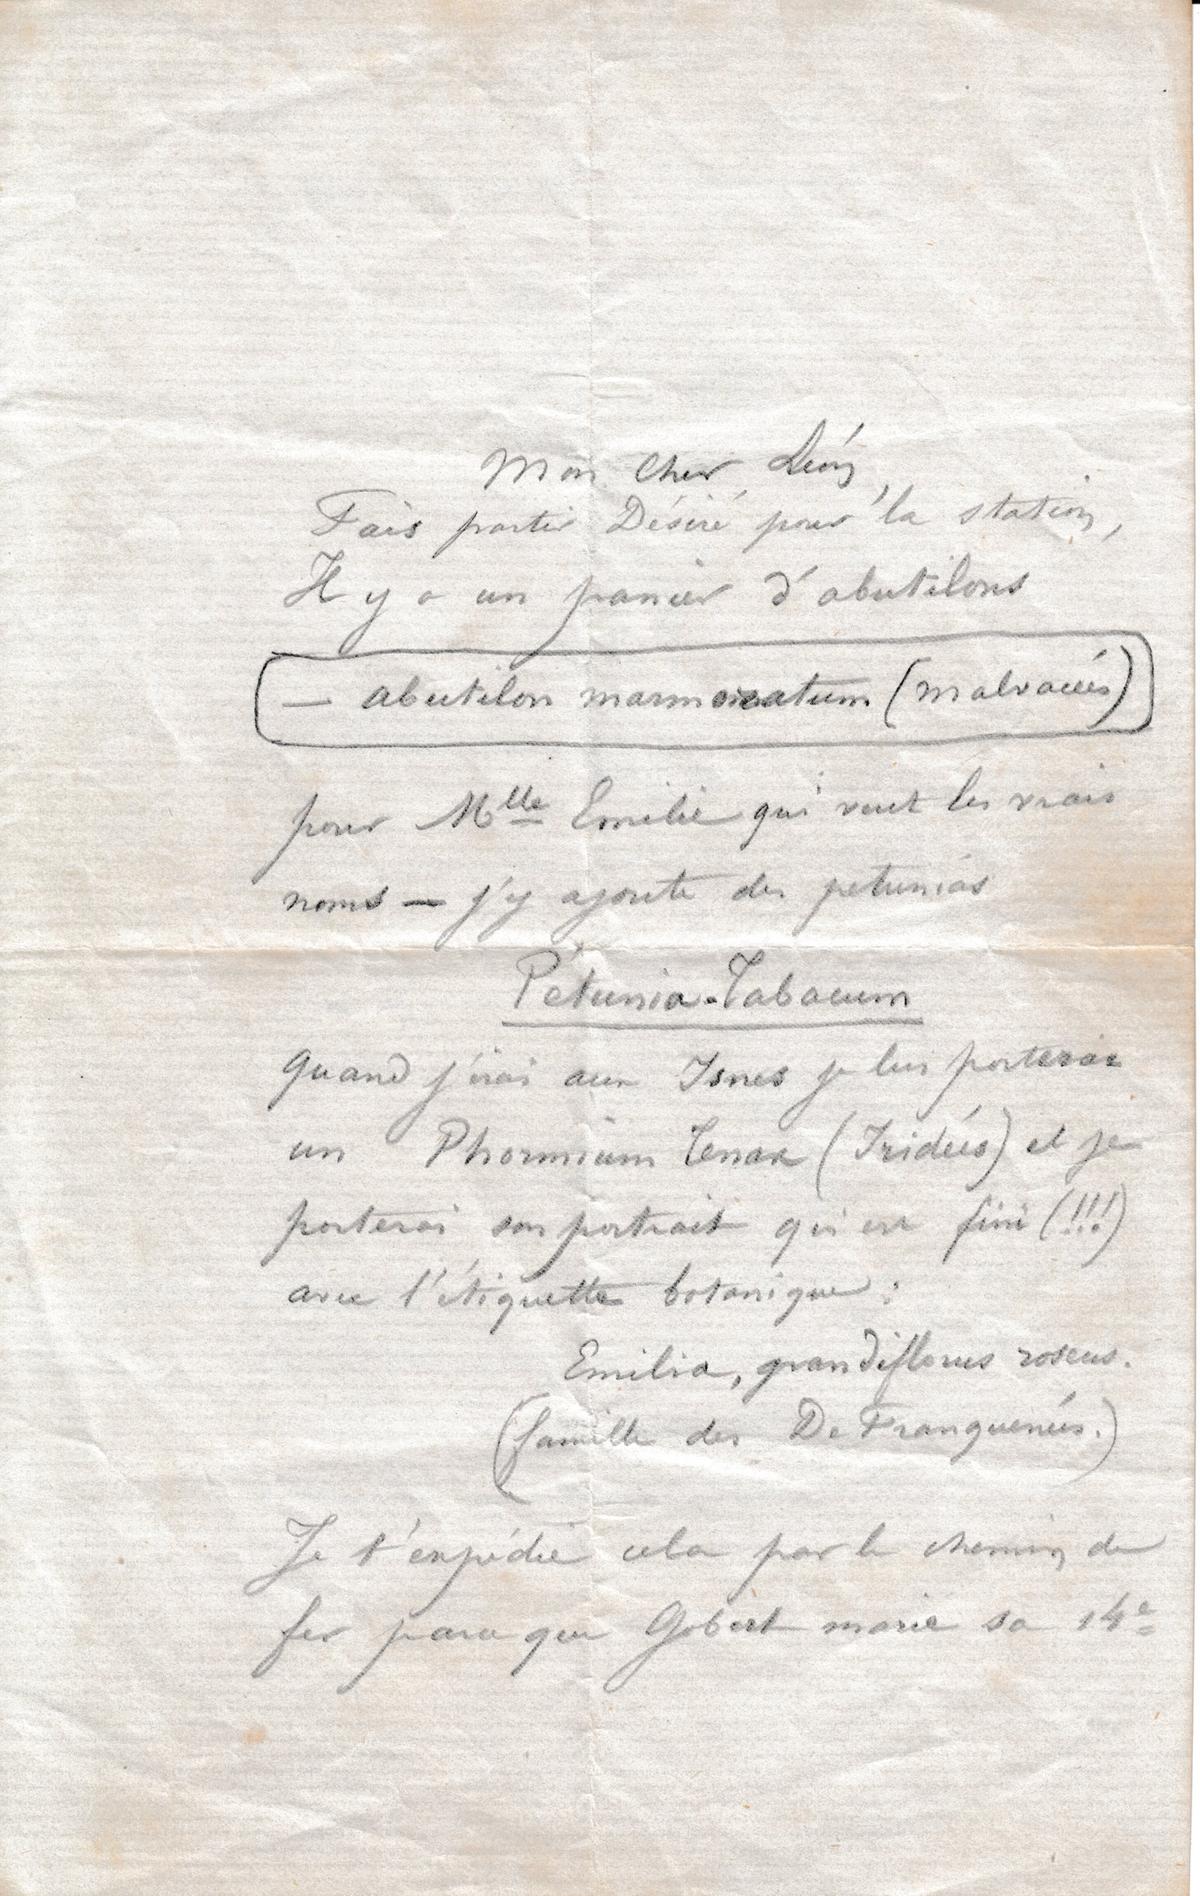 Mon cher Léon,
Fais partir Désiré pour la station,
Il y a un panier d'abutilons
— abutilon marmoratum (malvacées)
pour Mlle Emilie qui veut les vrais
noms — j'y ajoute des petunias
Pétunia-Tabacum
quand j'irai aux Isnes je lui porterai
un Phormium Tenax (Iridées) et je
porterai son portrait qui est fini (!!!)
avec l'étiquette botanique :
Emilia, grandiflorus roseus.
(famille des De Franquenées.)
Je t'expédie cela par le chemin de
fer parce que Gobert marie sa 14e